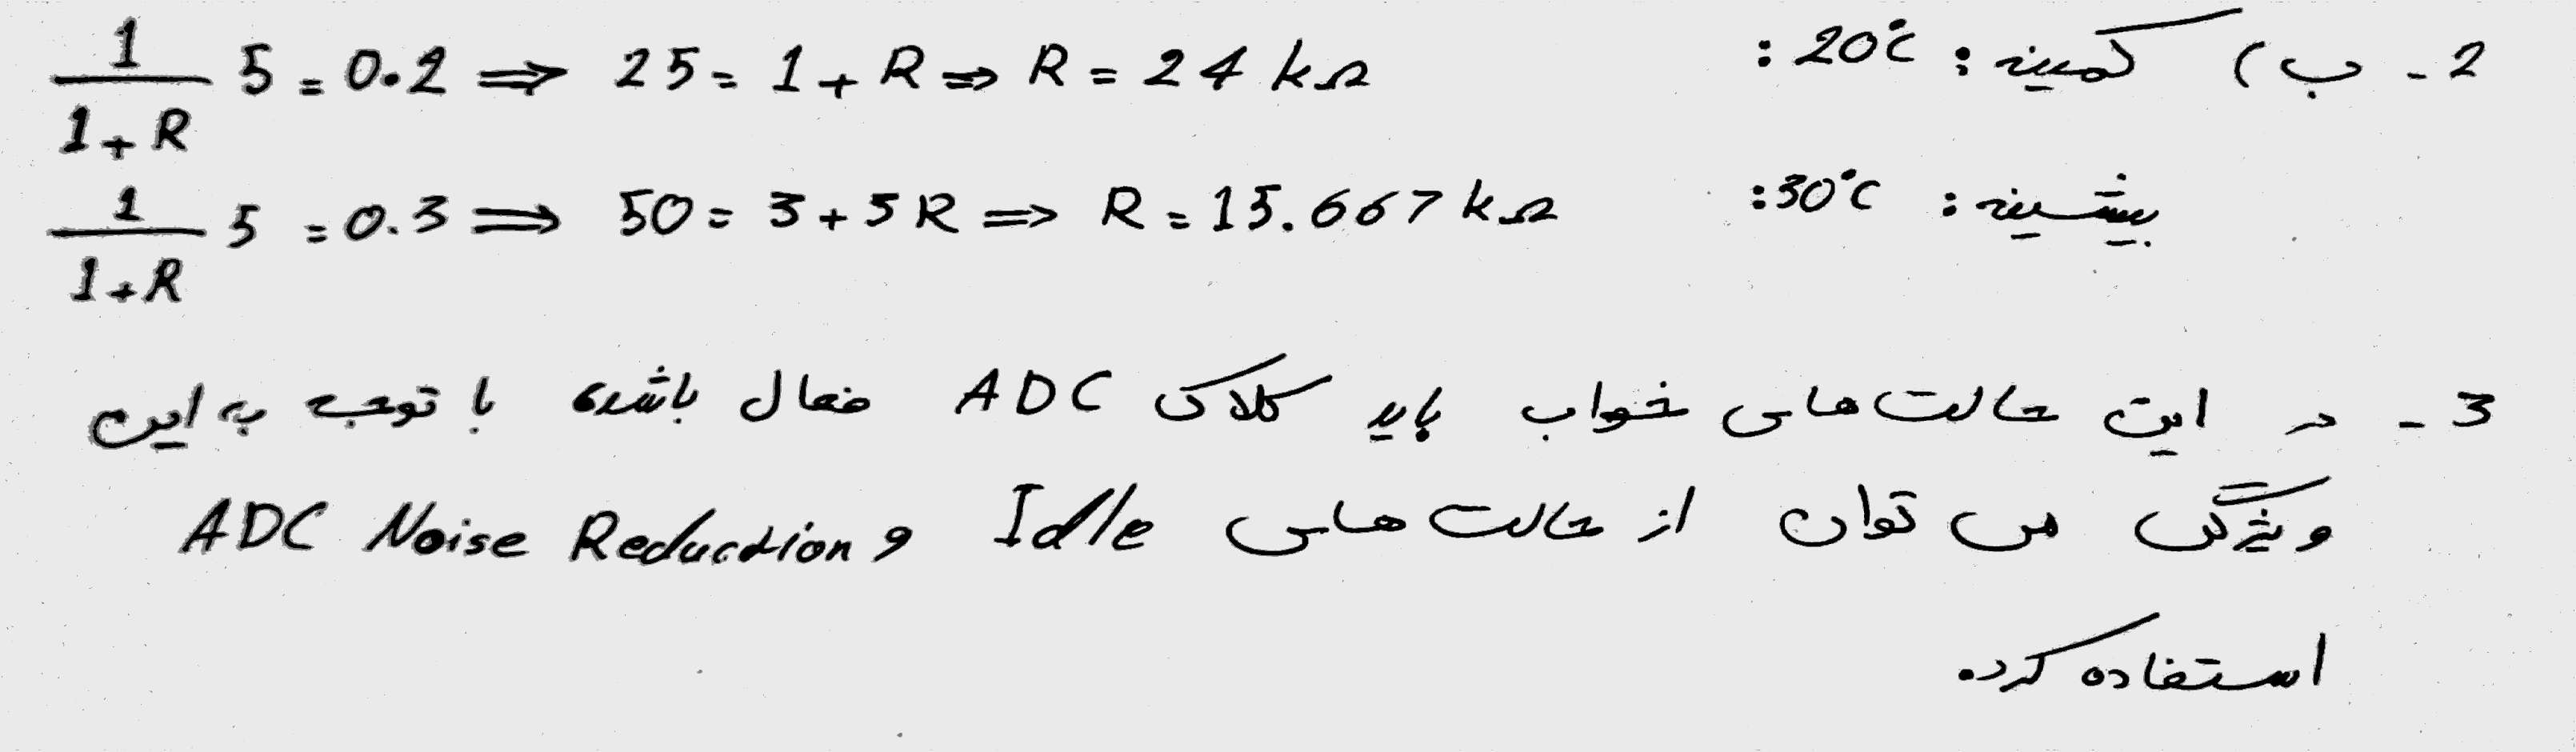 2 - ب) کمینه: 20°C: 1/(1+R) 5 = 0.2 ⇒ 25 = 1 + R ⇒ R = 24 kΩ
بیشینه: 30°C: 1/(1+R) 5 = 0.3 ⇒ 50 = 3 + 3R ⇒ R = 15.667 kΩ
3 - در این حالت‌های خواب باید کلاک ADC فعال باشد، با توجه به این
ویژگی می توان از حالت های Idle و ADC Noise Reduction
استفاده کرد.